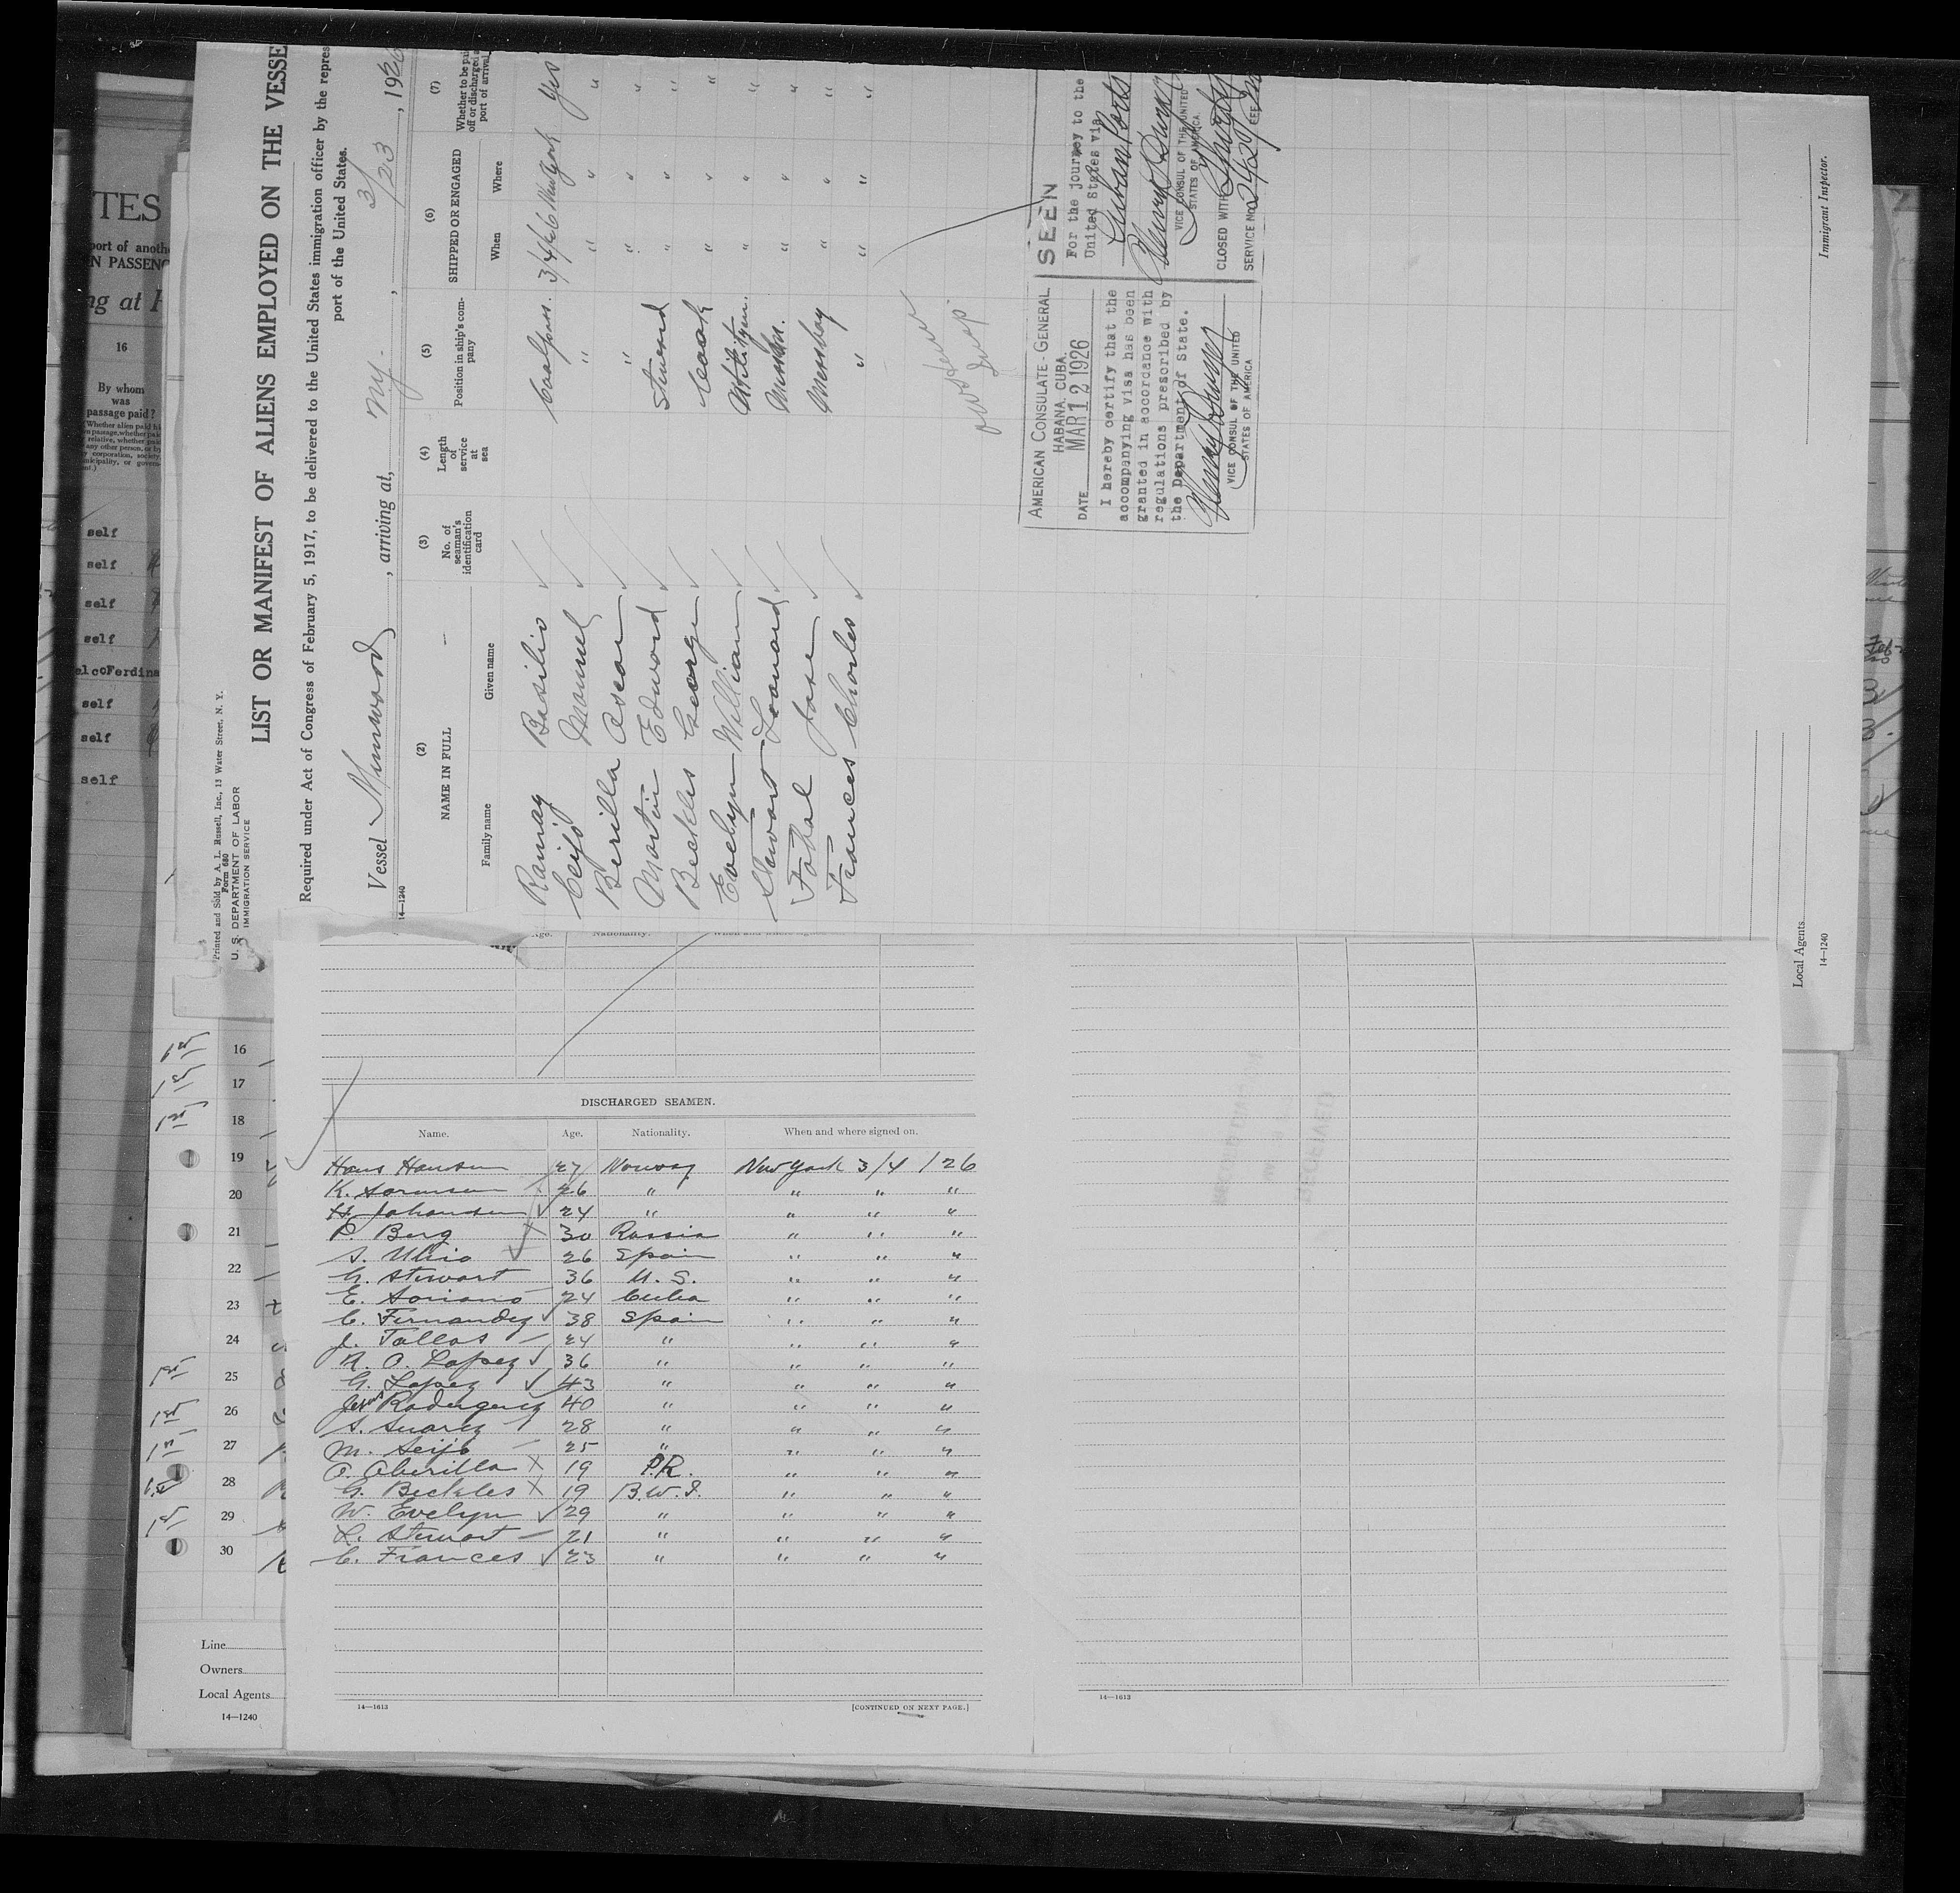 Printed and Sold by A. L. Russell, Inc., 13 Water Street, N. Y.
Form 680
U. S. DEPARTMENT OF LABOR
IMMIGRATION SERVICE
LIST OR MANIFEST OF ALIENS EMPLOYED ON THE VESSE
Required under Act of Congress of February 5, 1917, to be delivered to the United States immigration officer by the repres
port of the United States.
Vessel Munwood, arriving at, NY., 3/23, 1926
14—1240
(2) NAME IN FULL
(3) No. of seaman's identification card
(4) Length of service at sea
(5) Position in ship's company
(6) SHIPPED OR ENGAGED
(7) Whether to be pai off or discharged a port of arrival
Family name Given name When Where
Basilio 3/4/26 New York Yes
Ceijo Manuel " " " "
Berilla Oscar " " " "
Martin Edward Steward " " "
Beckles George Cook " " "
Evelyn William " " "
Stewart Leonard " " "
Jose Messboy " " "
Frances Charles " " " "
AMERICAN CONSULATE-GENERAL
HABANA, CUBA.
DATE MAR 12 1926
I hereby certify that the
accompanying visa has been
granted in accordance with
regulations prescribed by
the Department of State.
VICE CONSUL OF THE UNITED
STATES OF AMERICA
SEEN
For the journey to the
United States via
Cuban Ports
VICE CONSUL OF THE UNITED
STATES OF AMERICA
CLOSED WITH
SERVICE NO. 2429 FEE
Immigrant Inspector.
Local Agents
14—1240
TES
port of anoth
N PASSENG
ng at
16
By whom
was
passage paid?
self
self
self
self
elcoFerdina
self
self
self
16
17
18
19
20
21
22
23
24
25
26
27
28
29
30
Line
Owners
Local Agents
14—1240
Age. Nationality. When and where signed
DISCHARGED SEAMEN.
Name. Age. Nationality. When and where signed on.
Hans Hansen 27 Norway New York 3/4 /26
K. Sorensen 26 " " " "
H. Johansen 24 " " " "
P. Berg 30 Russia " " "
S. 26 Spain " " "
G. Stewart 36 U. S. " " "
E. Soriano 24 Cuba " " "
C. Fernandez 38 Spain " " "
J. Tallos 24 " " " "
R. O. Lopez 36 " " " "
G. Lopez 43 " " " "
40 " " " "
S. Suarez 28 " " " "
M. Seijo 25 " " " "
O. Aberilla 19 P.R. " " "
G. Beckles 19 B.W.I. " " "
W. Evelyn 29 " " " "
L. Stewart 21 " " " "
C. Frances 23 " " " "
14—1613 [CONTINUED ON NEXT PAGE.]
14—1613